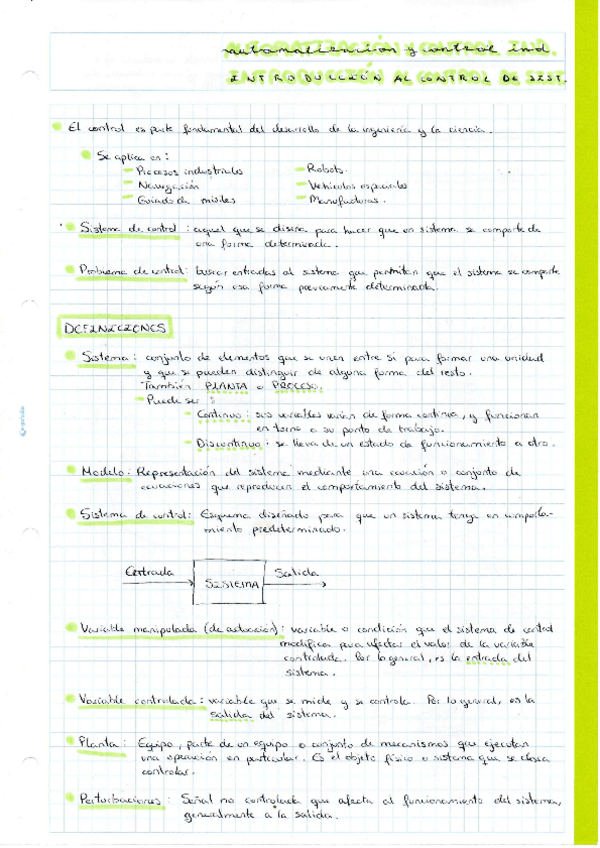 automatización y control ind.
INTRODUCCIÓN AL CONTROL DE SIST.
El control es parte fundamental del desarrollo de la ingeniería y la ciencia.
Se aplica en:
Procesos industriales
Robots.
Navegación
Vehículos espaciales
Guiado de misiles
Manufacturas.
Sistema de control: aquel que se diseña para hacer que un sistema se comporte de
una forma determinada.
Problema de control: buscar entradas al sistema que permitan que el sistema se comporte
según esa forma previamente determinada.
DEFINICIONES
Sistema: conjunto de elementos que se unen entre si para formar una unidad
y que se pueden distinguir de alguna forma del resto.
También PLANTA o PROCESO.
Puede ser:
Continuo: sus variables varían de forma continua, y funcionan
en torno a su punto de trabajo.
Discontinuo: se lleva de un estado de funcionamiento a otro.
Modelo: Representación del sistema mediante una ecuación o conjunto de
ecuaciones que reproducen el comportamiento del sistema.
Sistema de control: Esquema diseñado para que un sistema tenga un comporta-
miento predeterminado.
Entrada
SISTEMA
Salida
Variable manipulada (de actuación): variable o condición que el sistema de control
modifica para afectar el valor de la variable
controlada. Por lo general, es la entrada del
sistema.
Variable controlada: variable que se mide y se controla. Por lo general, es la
salida del sistema.
Planta: Equipo, parte de un equipo o conjunto de mecanismos que ejecutan
una operación en particular. Es el objeto físico o sistema que se desea
controlar.
Perturbaciones: Señal no controlada que afecta al funcionamiento del sistema,
generalmente a la salida.